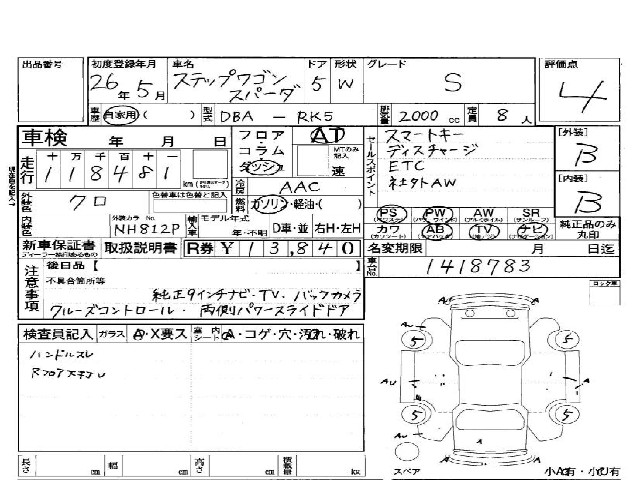 出品番号 初度登録年月 車名 ドア 形状 グレード 評価点
26年5月 ステップワゴン スパーダ 5 W S 4
車歴 自家用( ) 型式 DBA - RK5 排気量 2000 cc 定員 8 人
車検 年 月 日 フロア AT スマートキー [外装]
コラム MTのみ記入 ディスチャージ B
走行 十 万 千 百 十 一 ダッシュ 速 ETC
1 1 8 4 8 1 km 冷房 AAC セールスポイント 社外AW [内装]
外装色 クロ 色替車は色替と記入 燃料 ガソリン・軽油・( ) B
外装カラーNo. 輸入車 モデル年式 PS PW AW SR 純正品のみ丸印
内装色 NH812P 年・不明 D車・並 右H・左H カワ AB TV ナビ
新車保証書 取扱説明書 R券 ¥13,840 名変期限 月 日迄
注意事項 後日品【 車台No. 1418783
不具合箇所等 ロック車
純正9インチナビ・TV・バックカメラ
クルーズコントロール・両側パワースライドドア
検査員記入 ガラス A・X要ス 車内シート A・コゲ・穴・汚れ・破れ
ハンドルスレ
A A
5 5
AU AU
5 5
A
長さ cm 幅 cm 高さ cm 積載量 kg スペア 小A有・小U有